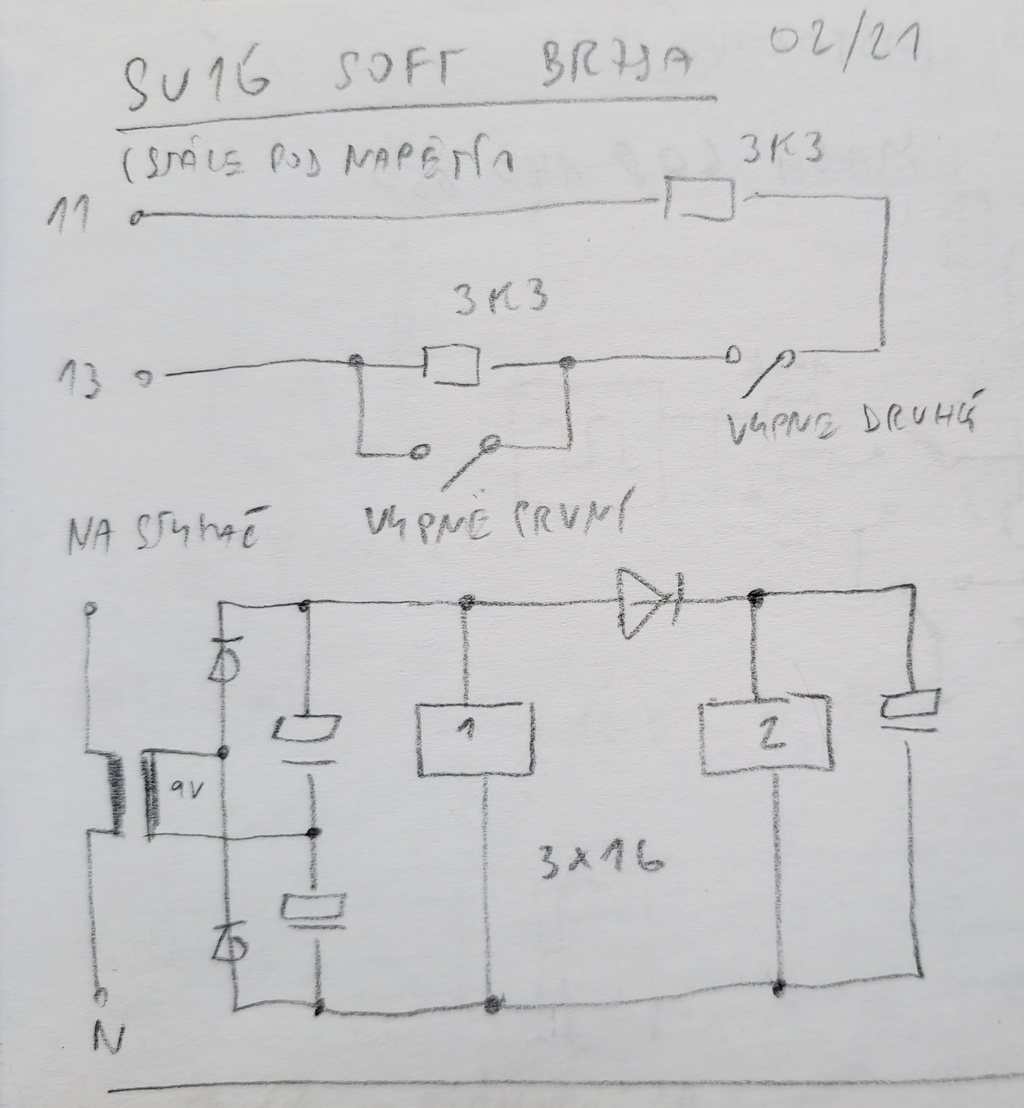 SV16 SOFT BRZDA 02/21
(STÁLE POD NAPĚTÍ)
3K3
11
3K3
13
VYPNE DRUHÝ
NA STYKAČ
VYPNE PRVNÍ
1
2
9V
3x16
N